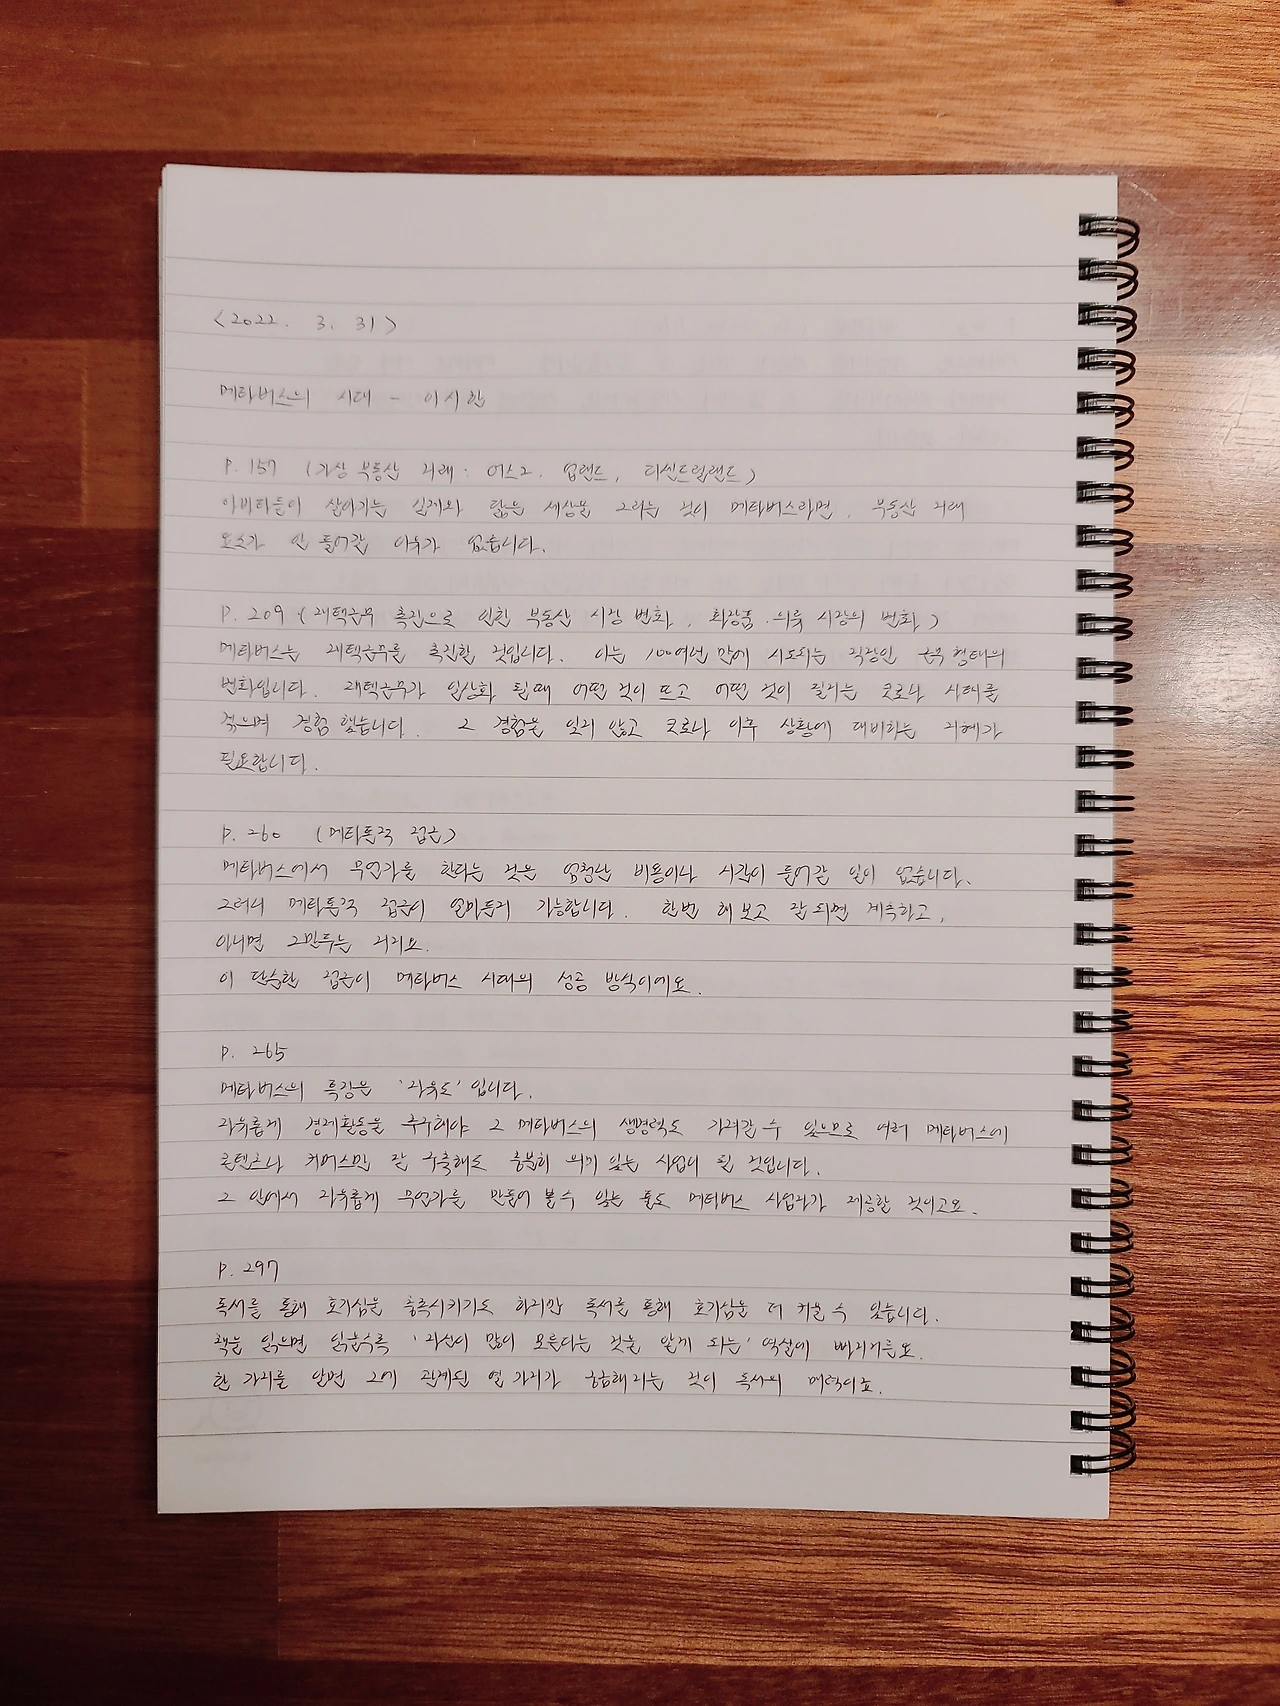 <2022. 3. 31>
메타버스의 시대 - 이시한
P. 157 (가상 부동산 거래 : 어스2. 업랜드, 디센트럴랜드)
아바타들이 살아가는 실제와 닮은 세상을 그리는 것이 메타버스라면, 부동산 거래
요소가 안 들어갈 이유가 없습니다.
P. 209 (재택근무 촉진으로 인한 부동산 시장 변화, 화장품·의류 시장의 변화)
메타버스는 재택근무를 촉진할 것입니다. 이는 100여년 만에 시도되는 직장인 근무 형태의
변화입니다. 재택근무가 일상화 될때 어떤 것이 뜨고 어떤 것이 질지는 코로나 시대를
겪으며 경험 했습니다. 그 경험을 잊지 않고 코로나 이후 상황에 대비하는 지혜가
필요합니다.
P. 260 (메타몽적 접근)
메타버스에서 무언가를 한다는 것은 엄청난 비용이나 시간이 들어갈 일이 없습니다.
그러니 메타몽적 접근이 얼마든지 가능합니다. 한번 해보고 잘 되면 계속하고,
아니면 그만두는 거지요.
이 단순한 접근이 메타버스 시대의 성공 방식이에요.
P. 265
메타버스의 특징은 '자유도' 입니다.
자유롭게 경제활동을 추구해야 그 메타버스의 생명력도 가져갈 수 있으므로 여러 메타버스에
콘텐츠나 커머스만 잘 구축해도 충분히 의미 있는 사업이 될 것입니다.
그 안에서 자유롭게 무언가를 만들어 볼 수 있는 툴도 메타버스 사업자가 제공할 것이고요.
P. 297
독서를 통해 호기심을 충족시키기도 하지만 독서를 통해 호기심을 더 키울 수 있습니다.
책을 읽으면 읽을수록 '자신이 많이 모른다는 것을 알게 되는' 역설에 빠지거든요.
한 가지를 알면 그에 관계된 열 가지가 궁금해지는 것이 독서의 매력이죠.